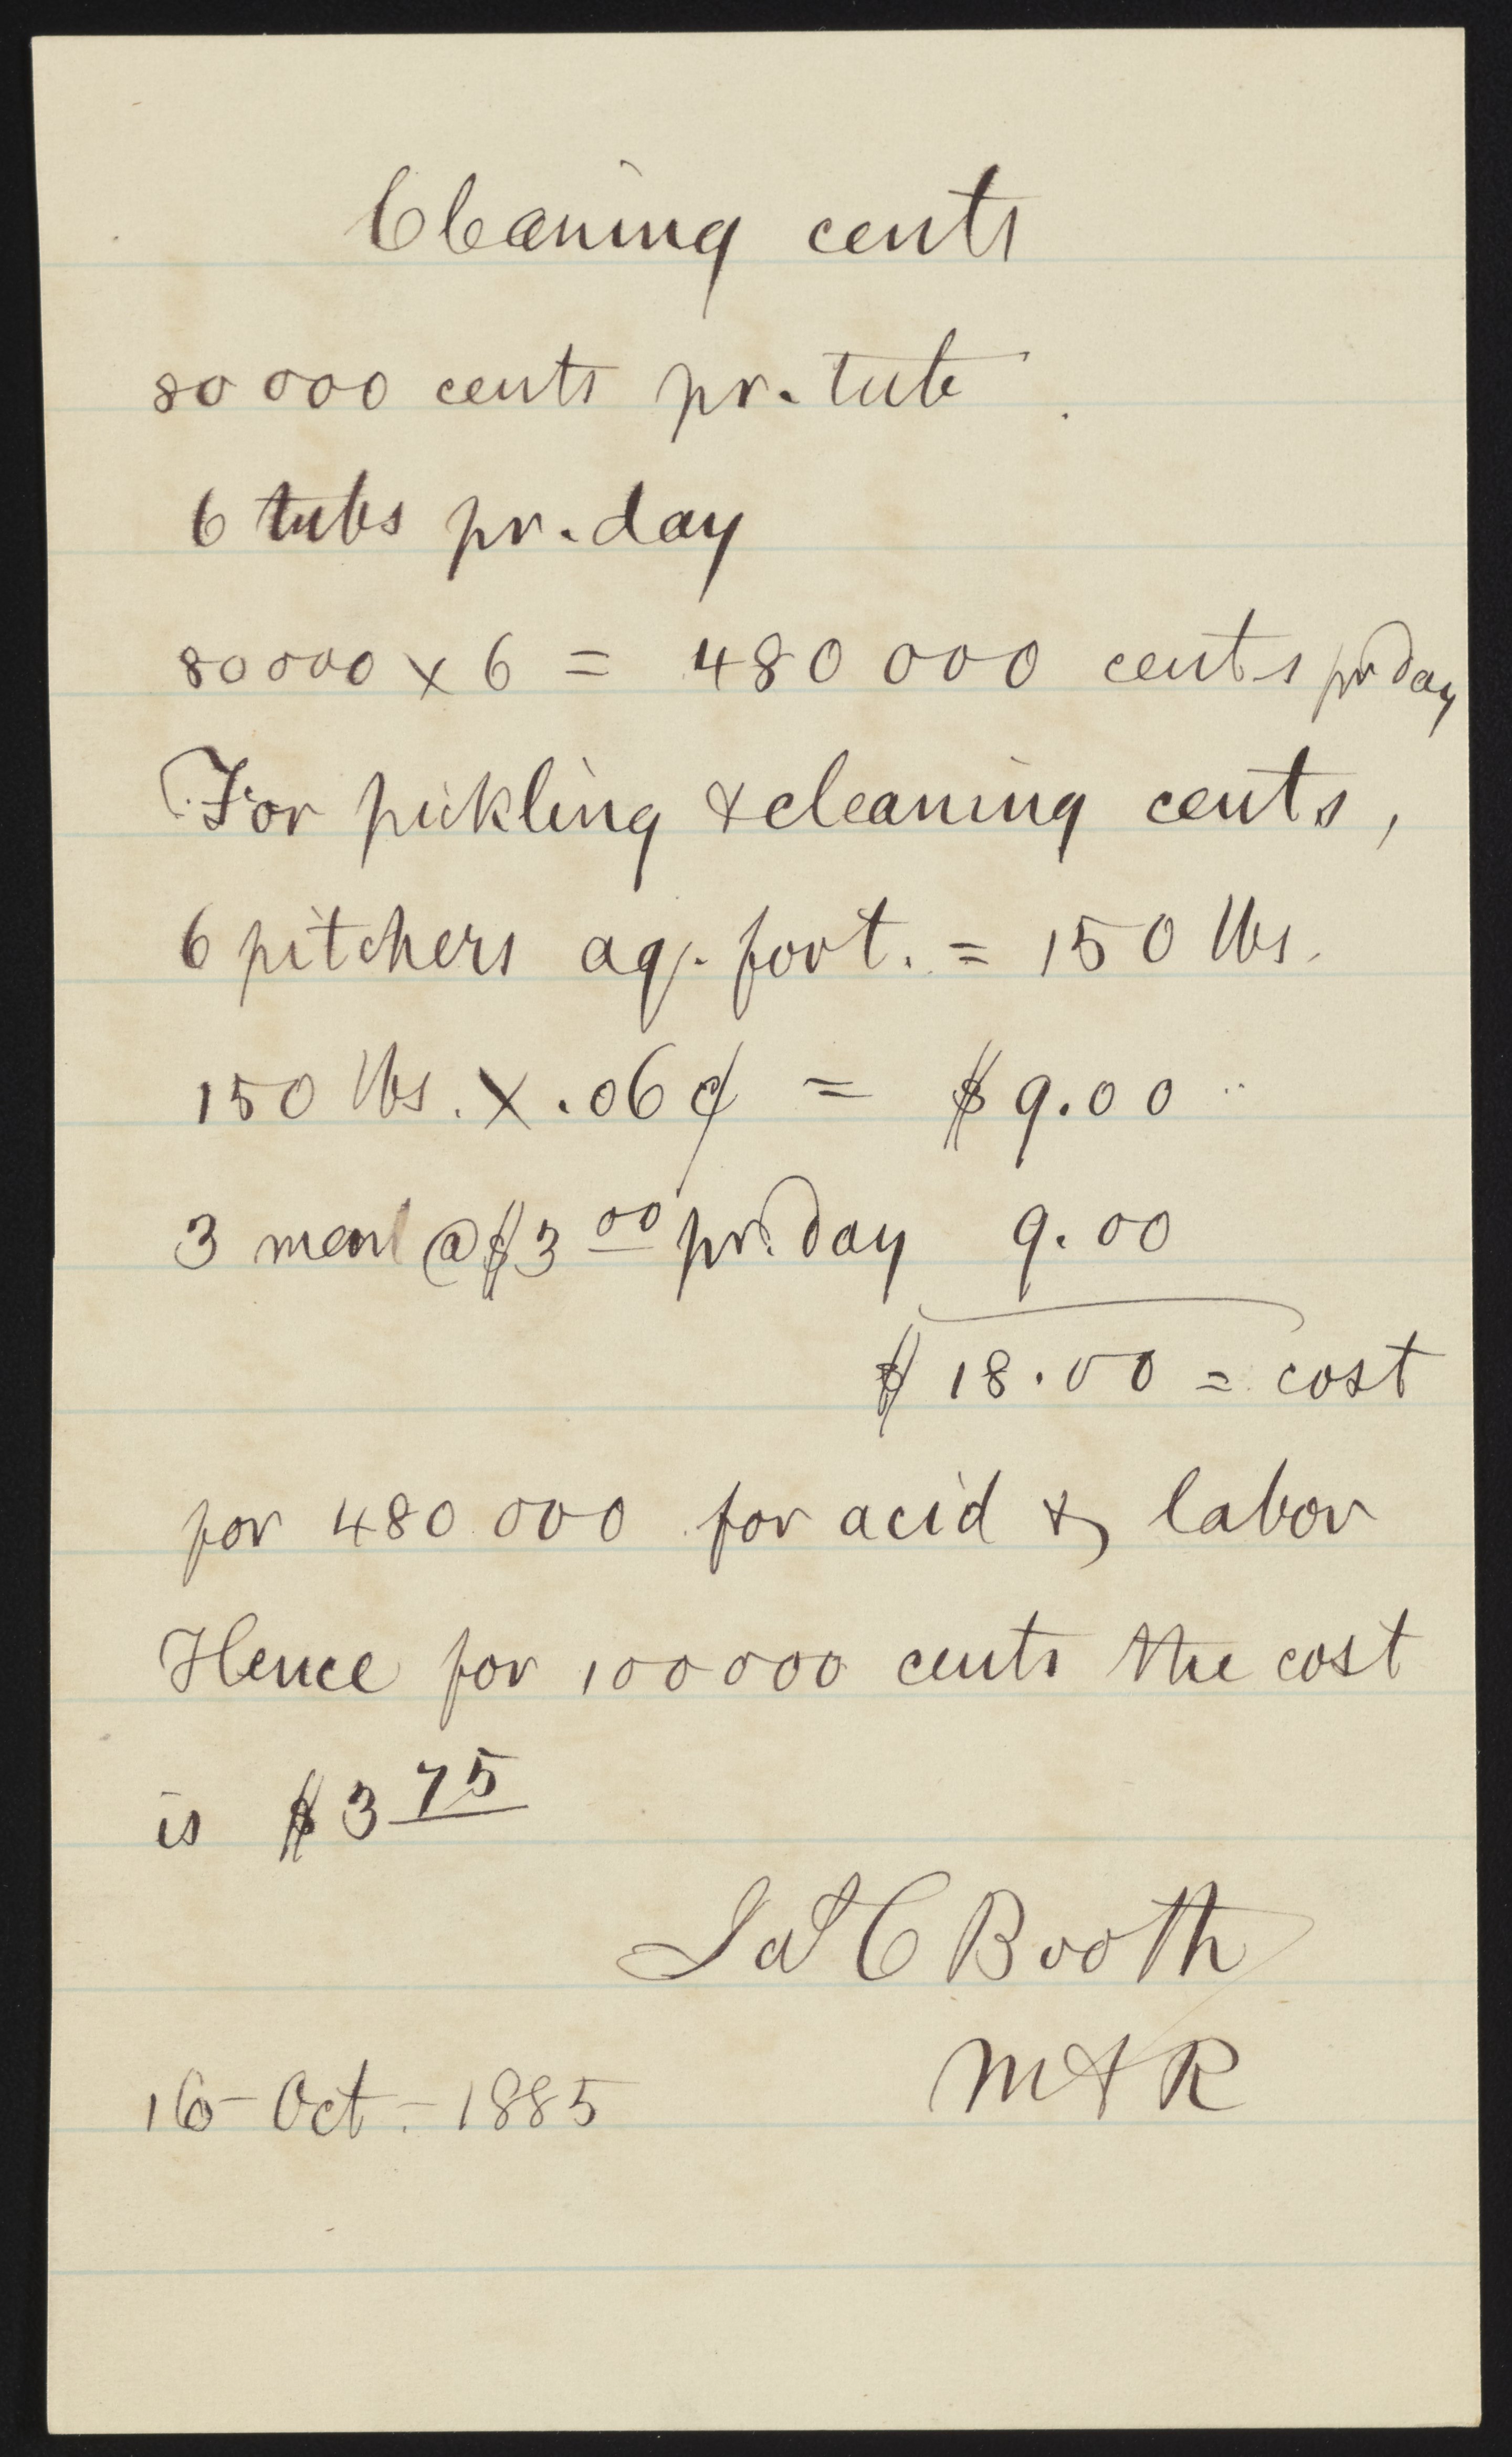 Cleaning cents
80 000 cents pr. tub
6 tubs pr. day
80000 x 6 = 480 000 cents pr day
For pickling & cleaning cents,
6 pitchers aq. fort. = 150 lbs.
150 lbs. x .06¢ = $ 9.00
3 men @ $3 00 pr. day 9.00
$ 18.00 = cost
for 480 000 for acid & labor
Hence for 100 000 cents the cost
is $3 75
Jas C Booth
M & R
16 - Oct. - 1885